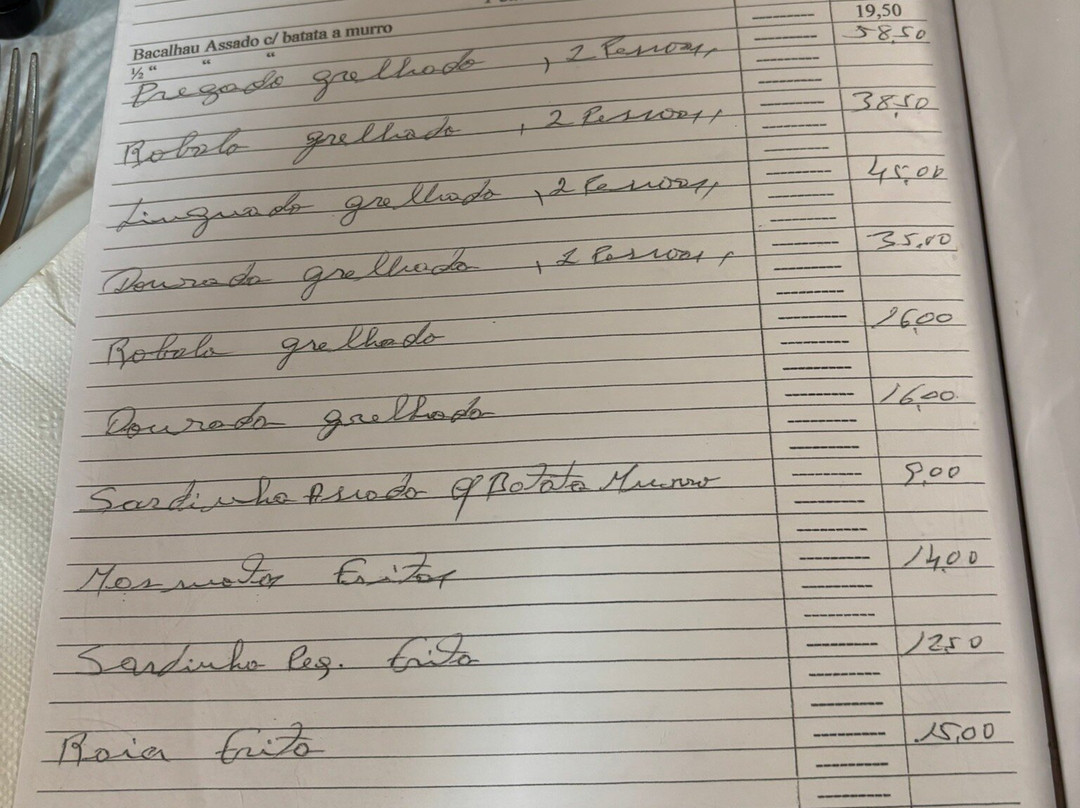 Bacalhau Assado c/ batata a murro 19,50
½ “ “ “
Pregado grelhado , 2 Pessoas, 58,50
Robalo grelhado , 2 Pessoas, 38,50
Linguado grelhado , 2 Pessoas, 45,00
Dourada grelhada , 2 Pessoas, 35,00
Robalo grelhado 16,00
Dourada grelhada 16,00
Sardinha Assada c/ Batata Murro 9,00
Mosmotas fritas 14,00
Sardinha Peq. frita 12,50
Raia frita 15,00